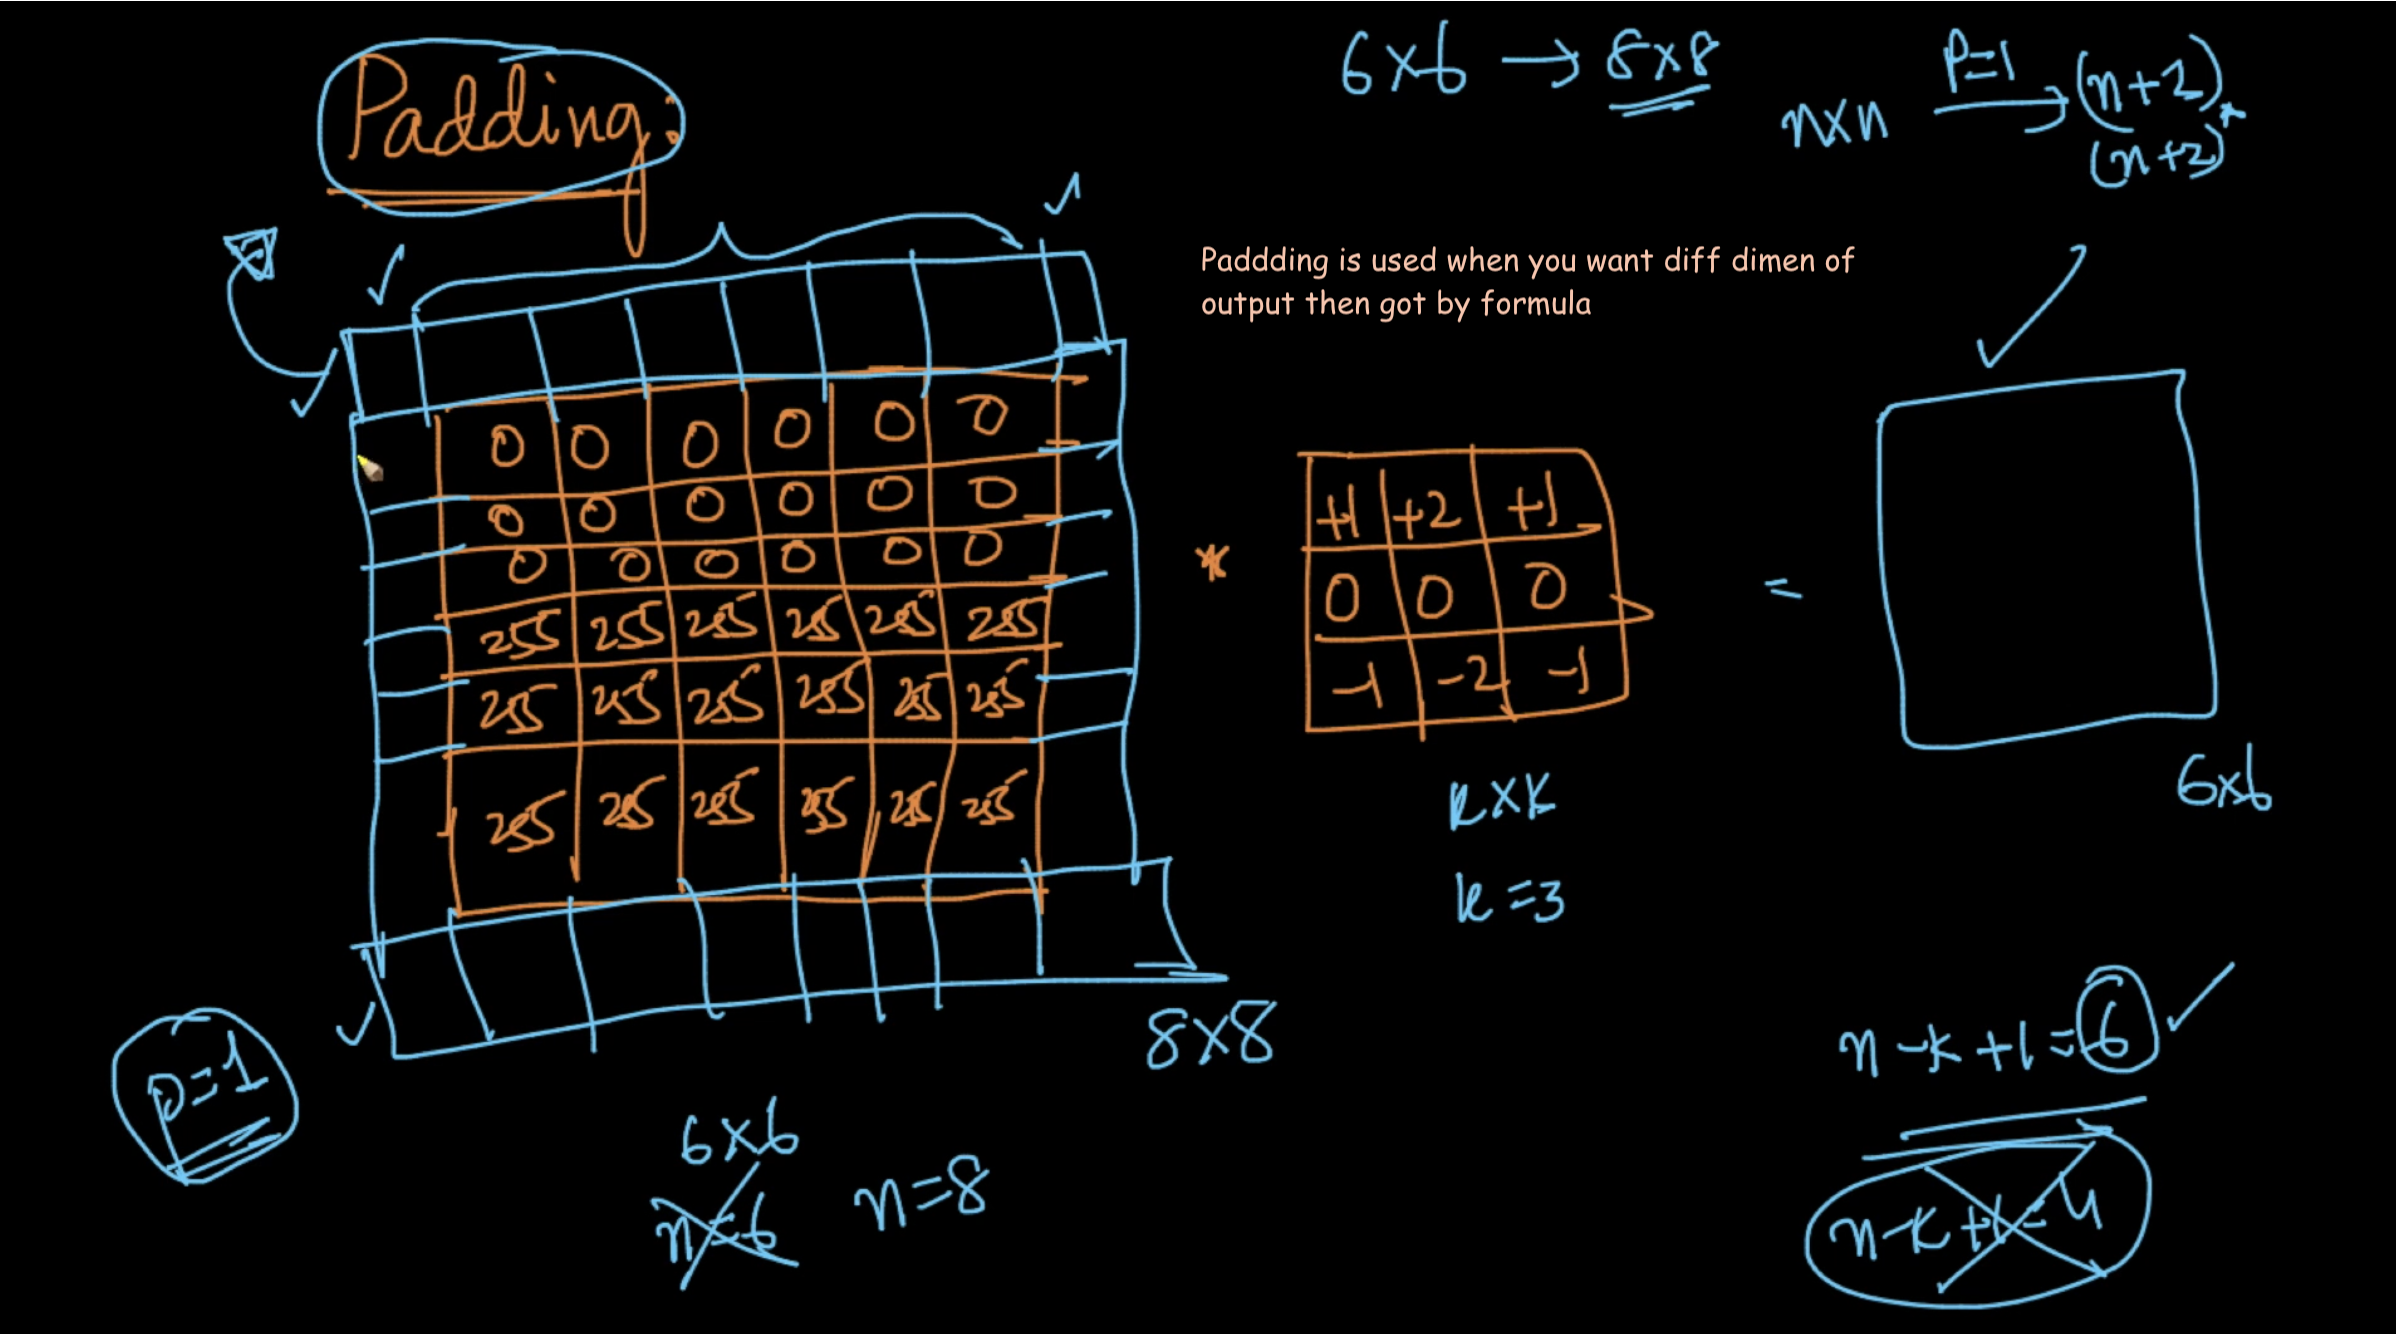 Padding:
6x6 → 8x8
nxn P=1 → (n+2)*
(n+2)
Paddding is used when you want diff dimen of
output then got by formula
0 0 0 0 0 0
0 0 0 0 0 0
0 0 0 0 0 0
255 255 255 255 255 255
255 255 255 255 255 255
255 255 255 255 255 255
*
+1 +2 +1
0 0 0
-1 -2 -1
=
kxk
k=3
6x6
8x8
p=1
6x6
n=6
n=8
n-k+1=6
n-k+1=4